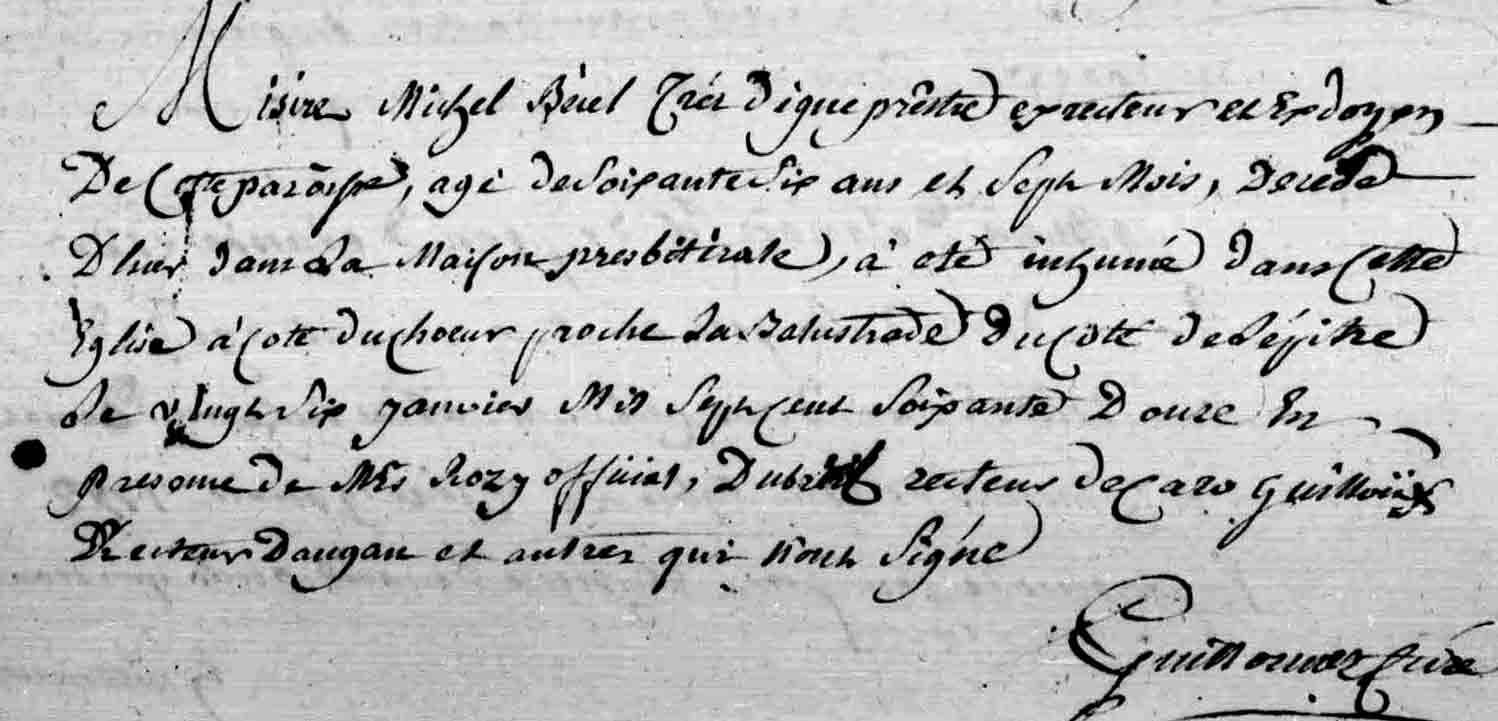 Misire Michel Bècel Très digne prêstre exrecteur et Exdoyen
De Cette paroisse, agé de Soixante Six ans et Sept Mois, Decedé
D'hier dans La Maison presbitérale, à eté inhumé dans Cette
Eglise à Coté du Choeur proche La Balustrade du Côté de L'épitre
Le vingt Six Janvier Mil Sept Cent Soixante Douze En
presence de MEs Rozy official, recteur de Caro
Recteur Daugan et autres qui n'ont Signé
Curé